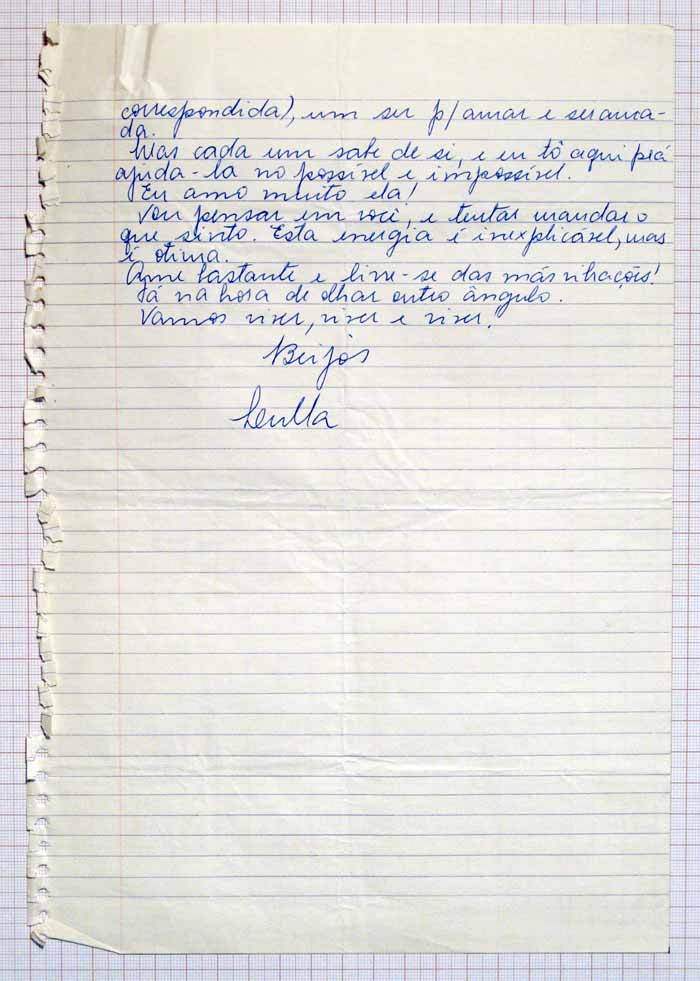 correspondida), um ser p/ amar e ser ama-
da.
Mas cada um sabe de si, e eu tô aqui prá
ajuda-la no possível e impossível.
Eu amo muito ela!
Vou pensar em você, e tentar mandar o
que sinto. Esta energia é inexplicável, mas
é otima.
Ame bastante e livre-se das más vibações!
Tá na hora de olhar outro ângulo.
Vamos viver, viver e viver!
Beijos